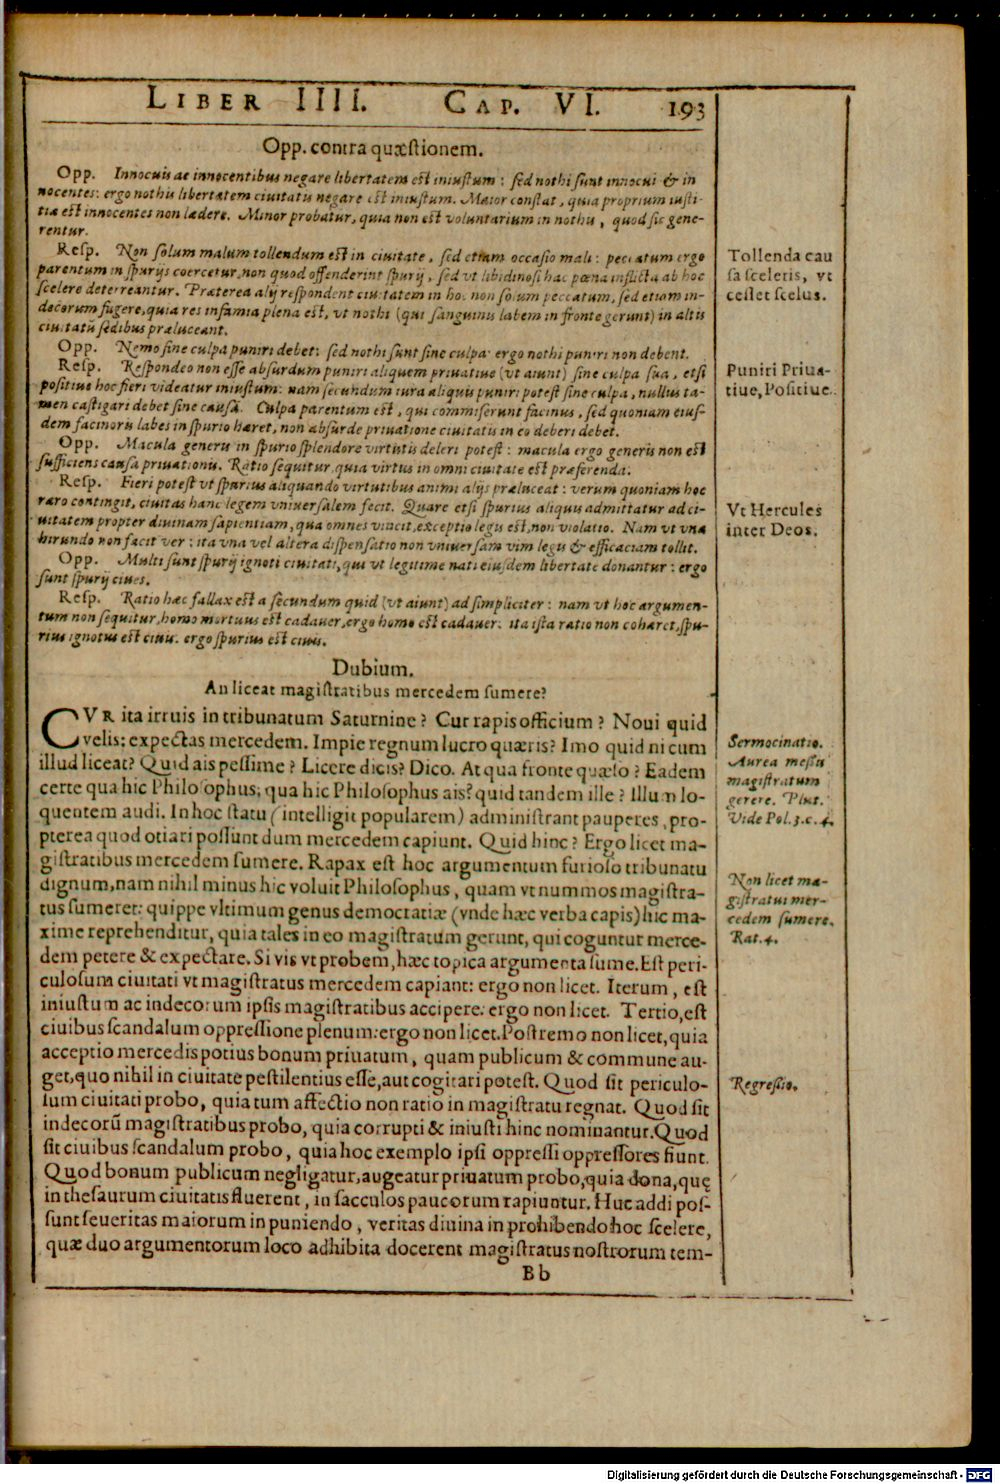 LIBER IIII. CAP. VI. 193
Opp. contra quæstionem.
Opp. Innocuis ac innocentibus negare libertatem est iniustum : sed nothi sunt innocui & in
nocentes: ergo nothis libertatem ciuitatis negare est iniustum. Maior constat, quia proprium iusti-
tiæ est innocentes non lædere. Minor probatur, quia non est voluntarium in nothis, quod sic gene-
rentur.
Resp. Non solum malum tollendum est in ciuitate, sed etiam occasio mali: peccatum ergo
parentum in spurijs coercetur, non quod offenderint spurij, sed vt libidinosi hac pœna inflicta ab hoc
scelere deterreantur. Præterea alij respondent ciuitatem in hoc non solum peccatum, sed etiam in-
decorum fugere, quia res infamia plena est, vt nothi (qui sanguinis labem in fronte gerunt) in altis
ciuitatū sedibus præluceant.
Opp. Nemo sine culpa puniri debet: sed nothi sunt sine culpa: ergo nothi puniri non debent.
Resp. Respondeo non esse absurdum puniri aliquem priuatiue (vt aiunt) sine culpa sua, etsi
positiue hoc fieri videatur iniustum: nam secundum iura aliquis puniri potest sine culpa, nullus ta-
men castigari debet sine causa. Culpa parentum est, qui commiserunt facinus, sed quoniam eius-
dem facinoris labes in spurio hæret, non absurde priuatione ciuitatis in eo deberi debet.
Opp. Macula generis in spurio splendore virtutis deleri potest : macula ergo generis non est
sufficiens causa priuationis. Ratio sequitur, quia virtus in omni ciuitate est præferenda.
Resp. Fieri potest vt spurius aliquando virtutibus animi alijs præluceat : verum quoniam hoc
raro contingit, ciuitas hanc legem vniuersalem fecit. Quare etsi spurius aliquis admittatur ad ci-
uitatem propter diuinam sapientiam, qua omnes vincit, exceptio legis est, non violatio. Nam vt vna
hirundo non facit ver : ita vna vel altera dispensatio non vniuersam vim legis & efficaciam tollit.
Opp. Multi sunt spurij ignoti ciuitati, qui vt legitime nati eiusdem libertate donantur : ergo
sunt spurij ciues.
Resp. Ratio hæc fallax est a secundum quid (vt aiunt) ad simpliciter : nam vt hoc argumen-
tum non sequitur, homo mortuus est cadauer, ergo homo est cadauer: ita ista ratio non cohæret, spu-
rius ignotus est ciuis. ergo spurius est ciuis.
Dubium.
An liceat magistratibus mercedem sumere?
CVR ita irruis in tribunatum Saturnine? Cur rapis officium? Noui quid
velis: expectas mercedem. Impie regnum lucro quæris? Imo quid ni cum
illud liceat? Quid ais pessime? Licere dicis? Dico. At qua fronte quæso? Eadem
certe qua hic Philosophus; qua hic Philosophus ais? quid tandem ille? Illum lo-
quentem audi. In hoc statu (intelligit popularem) administrant pauperes, pro-
pterea quod otiari possunt dum mercedem capiunt. Quid hinc? Ergo licet ma-
gistratibus mercedem sumere. Rapax est hoc argumentum furioso tribunatu
dignum, nam nihil minus hic voluit Philosophus, quam vt nummos magistra-
tus sumeret: quippe vltimum genus democratiæ (vnde hæc verba capis) hic ma-
xime reprehenditur, quia tales in eo magistratum gerunt, qui coguntur merce-
dem petere & expectare. Si vis vt probem, hæc topica argumenta sume. Est peri-
culosum ciuitati vt magistratus mercedem capiant: ergo non licet. Iterum, est
iniustum ac indecorum ipsis magistratibus accipere: ergo non licet. Tertio, est
ciuibus scandalum oppressione plenum: ergo non licet. Postremo non licet, quia
acceptio mercedis potius bonum priuatum, quam publicum & commune au-
get, quo nihil in ciuitate pestilentius esse, aut cogitari potest. Quod sit periculo-
sum ciuitati probo, quia tum affectio non ratio in magistratu regnat. Quod sit
indecorū magistratibus probo, quia corrupti & iniusti hinc nominantur. Quod
sit ciuibus scandalum probo, quia hoc exemplo ipsi oppressi oppressores fiunt.
Quod bonum publicum negligatur, augeatur priuatum probo, quia dona, quę
in thesaurum ciuitatis fluerent, in sacculos paucorum rapiuntur. Huc addi pos-
sunt seueritas maiorum in puniendo, veritas diuina in prohibendo hoc scelere,
quæ duo argumentorum loco adhibita docerent magistratus nostrorum tem-
Bb
Tollenda cau
sa sceleris, vt
cesset scelus.
Puniri Priua-
tiue, Positiue.
Vt Hercules
inter Deos.
Sermocinatio.
Aurea messis
magistratum
gerere. Plut.
Vide Pol. 3. c. 4.
Non licet ma-
gistratui mer-
cedem sumere.
Rat. 4.
Regressio.
Digitalisierung gefördert durch die Deutsche Forschungsgemeinschaft - DFG